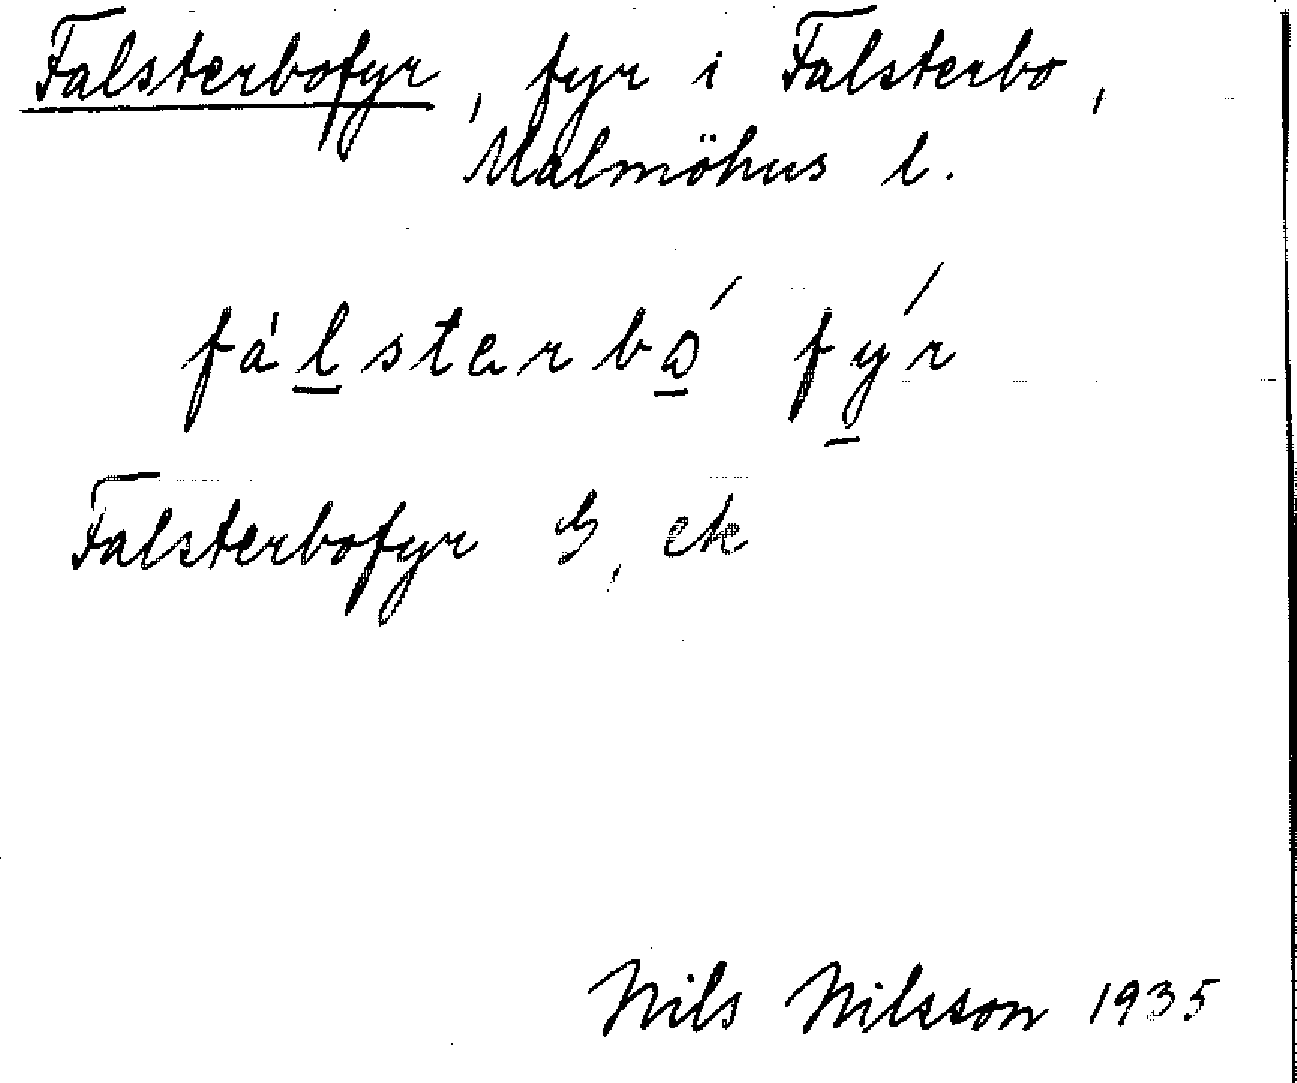 Falsterbofyr, fyr i Falsterbo,
Malmöhus l.
fálsterbó fýr
Falsterbofyr G, ek
Nils Nilsson 1935